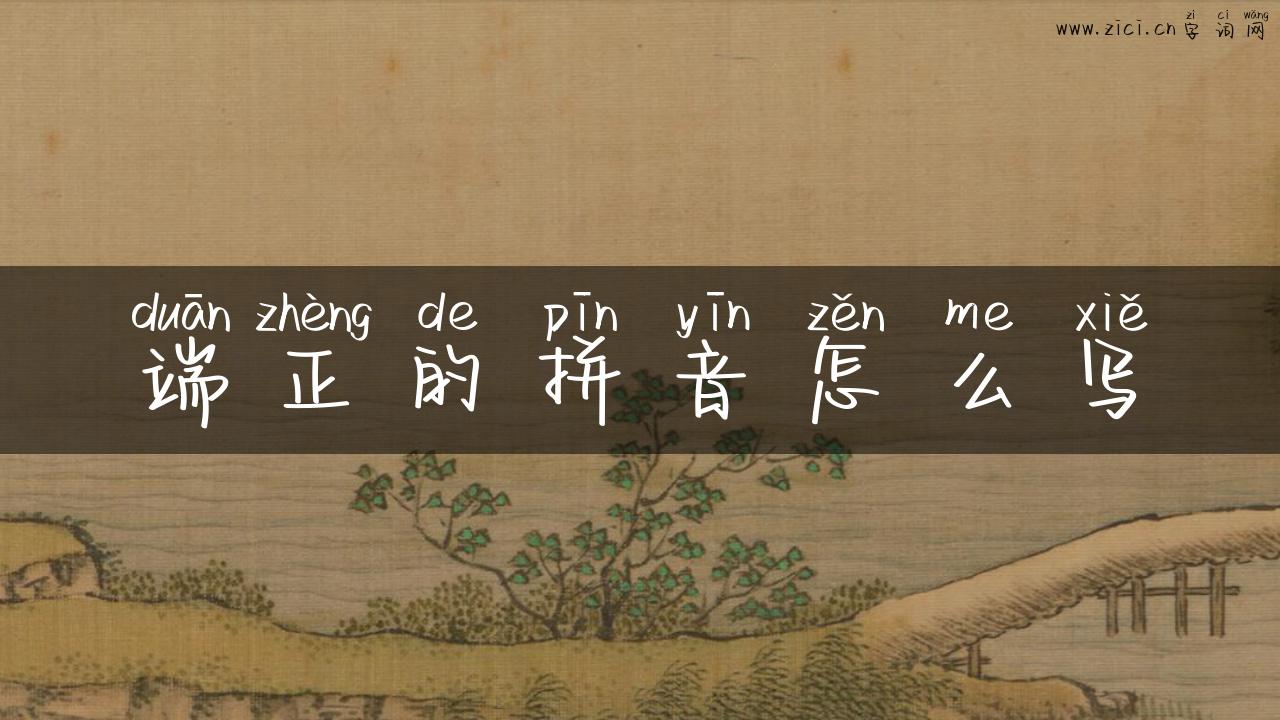 zì cí wǎng
www.zici.cn 字 词 网
duān zhèng de pīn yīn zěn me xiě
端 正 的 拼 音 怎 么 写